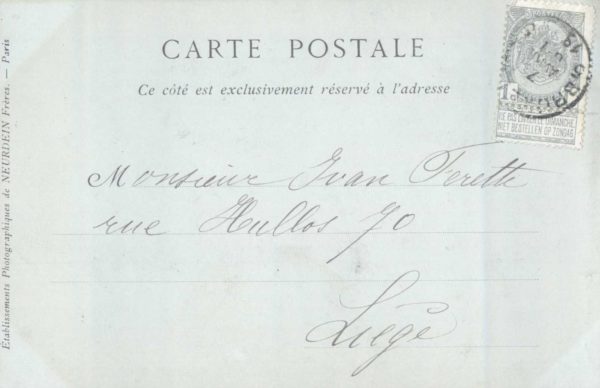 CARTE POSTALE
Ce côté est exclusivement réservé à l'adresse
Monsieur Ivan Ferette
rue Hullos 70
Liége
Établissements Photographiques de NEURDEIN Frères. — Paris
1
NE PAS LIVRER LE DIMANCHE
NIET BESTELLEN OP ZONDAG